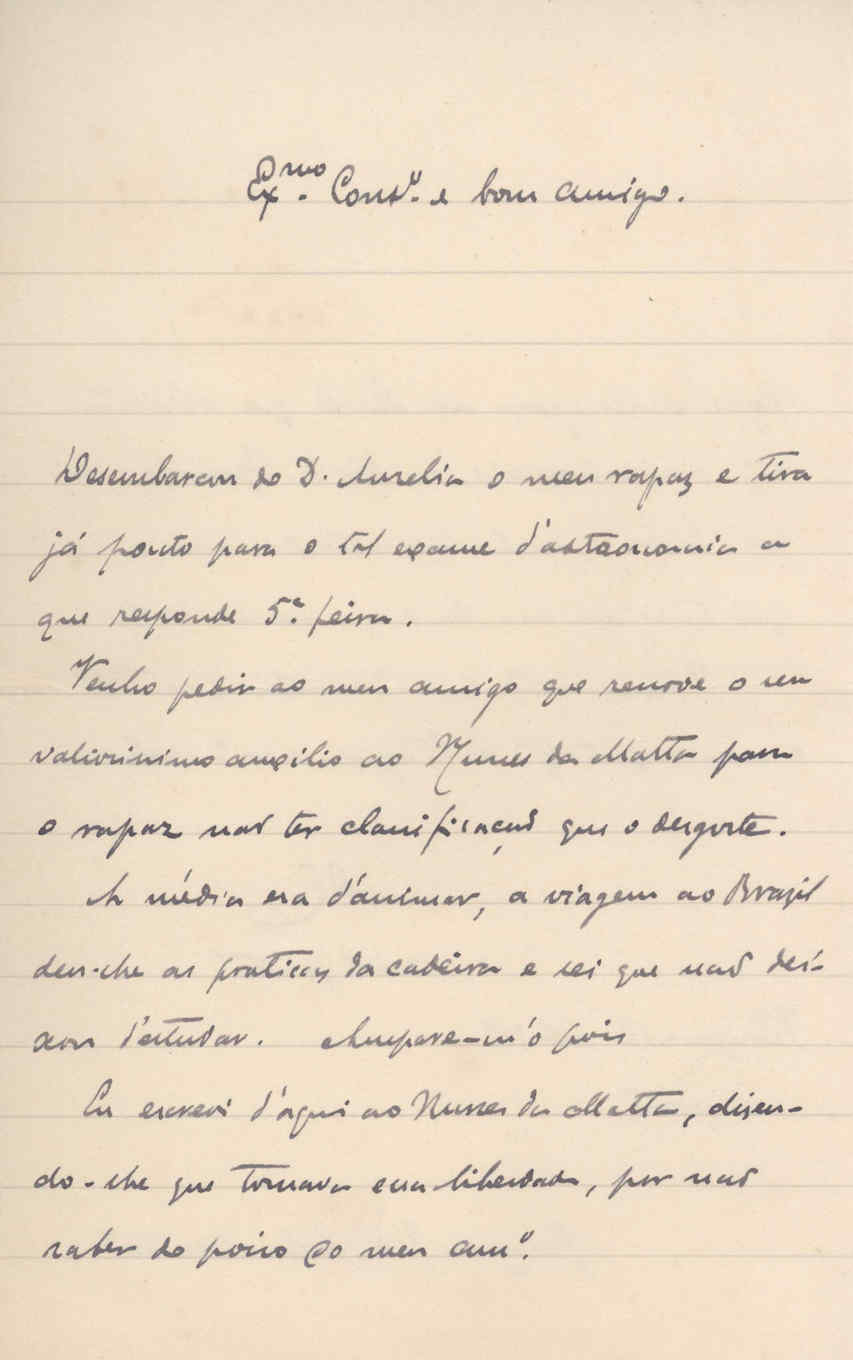 Ex.mo Cons.o e bom amigo.
Desembarcou do D. Amelia o meu rapaz e tira
já ponto para o tal exame d'astronomia a
que responde 5.a feira.
Venho pedir ao meu amigo que renove o seu
valiosissimo auxilio ao Nunes da Matta para
o rapaz não ter classificação que o desgoste.
A média era d'animar, a viagem ao Brazil
deu-lhe as praticas da cadeira e sei que não dei-
xou d'estudar. Ampare-m'o pois
Eu escrevi d'aqui ao Nunes da Matta, dizen-
do-lhe que tomava essa liberdade, por não
saber do poiso do meu am.o.